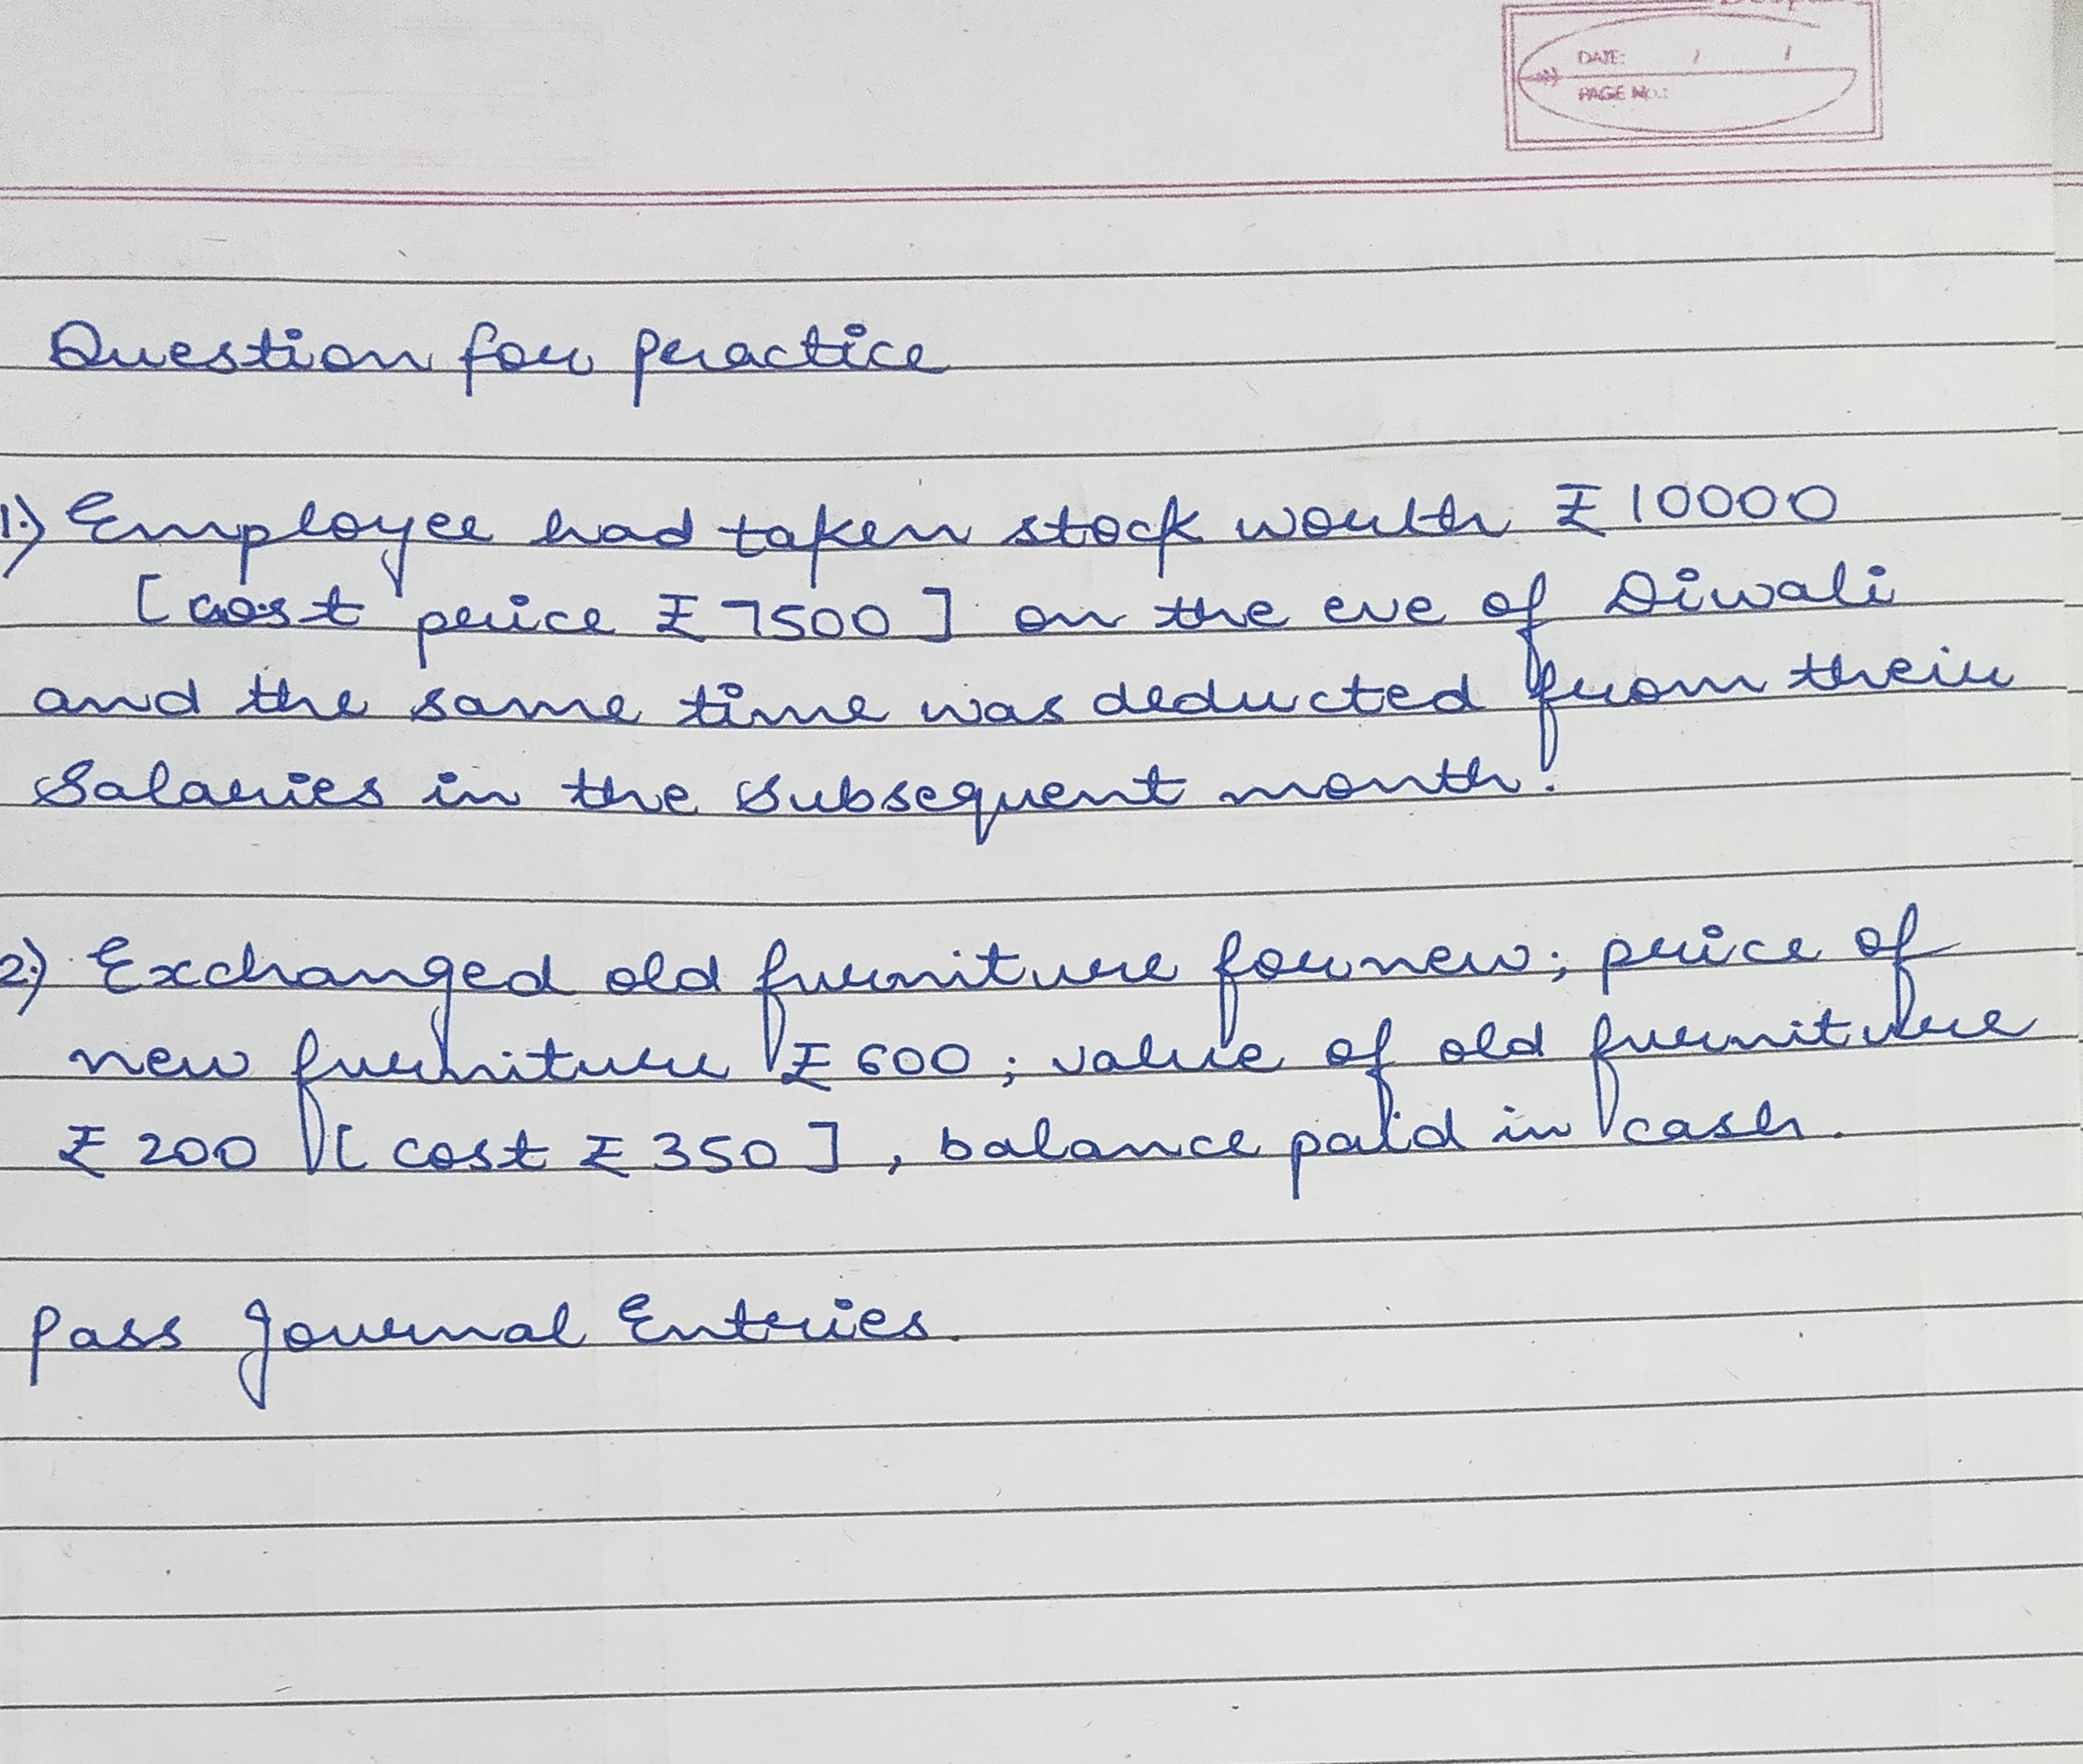 DATE: / /
PAGE No.:
Question for practice
1.) Employee had taken stock worth ₹ 10000
[cost price ₹ 7500] on the eve of Diwali
and the same time was deducted from their
Salaries in the subsequent month.
2.) Exchanged old furniture for new; price of
new furniture ₹ 600; value of old furniture
₹ 200 [cost ₹ 350], balance paid in cash.
Pass Journal Entries.